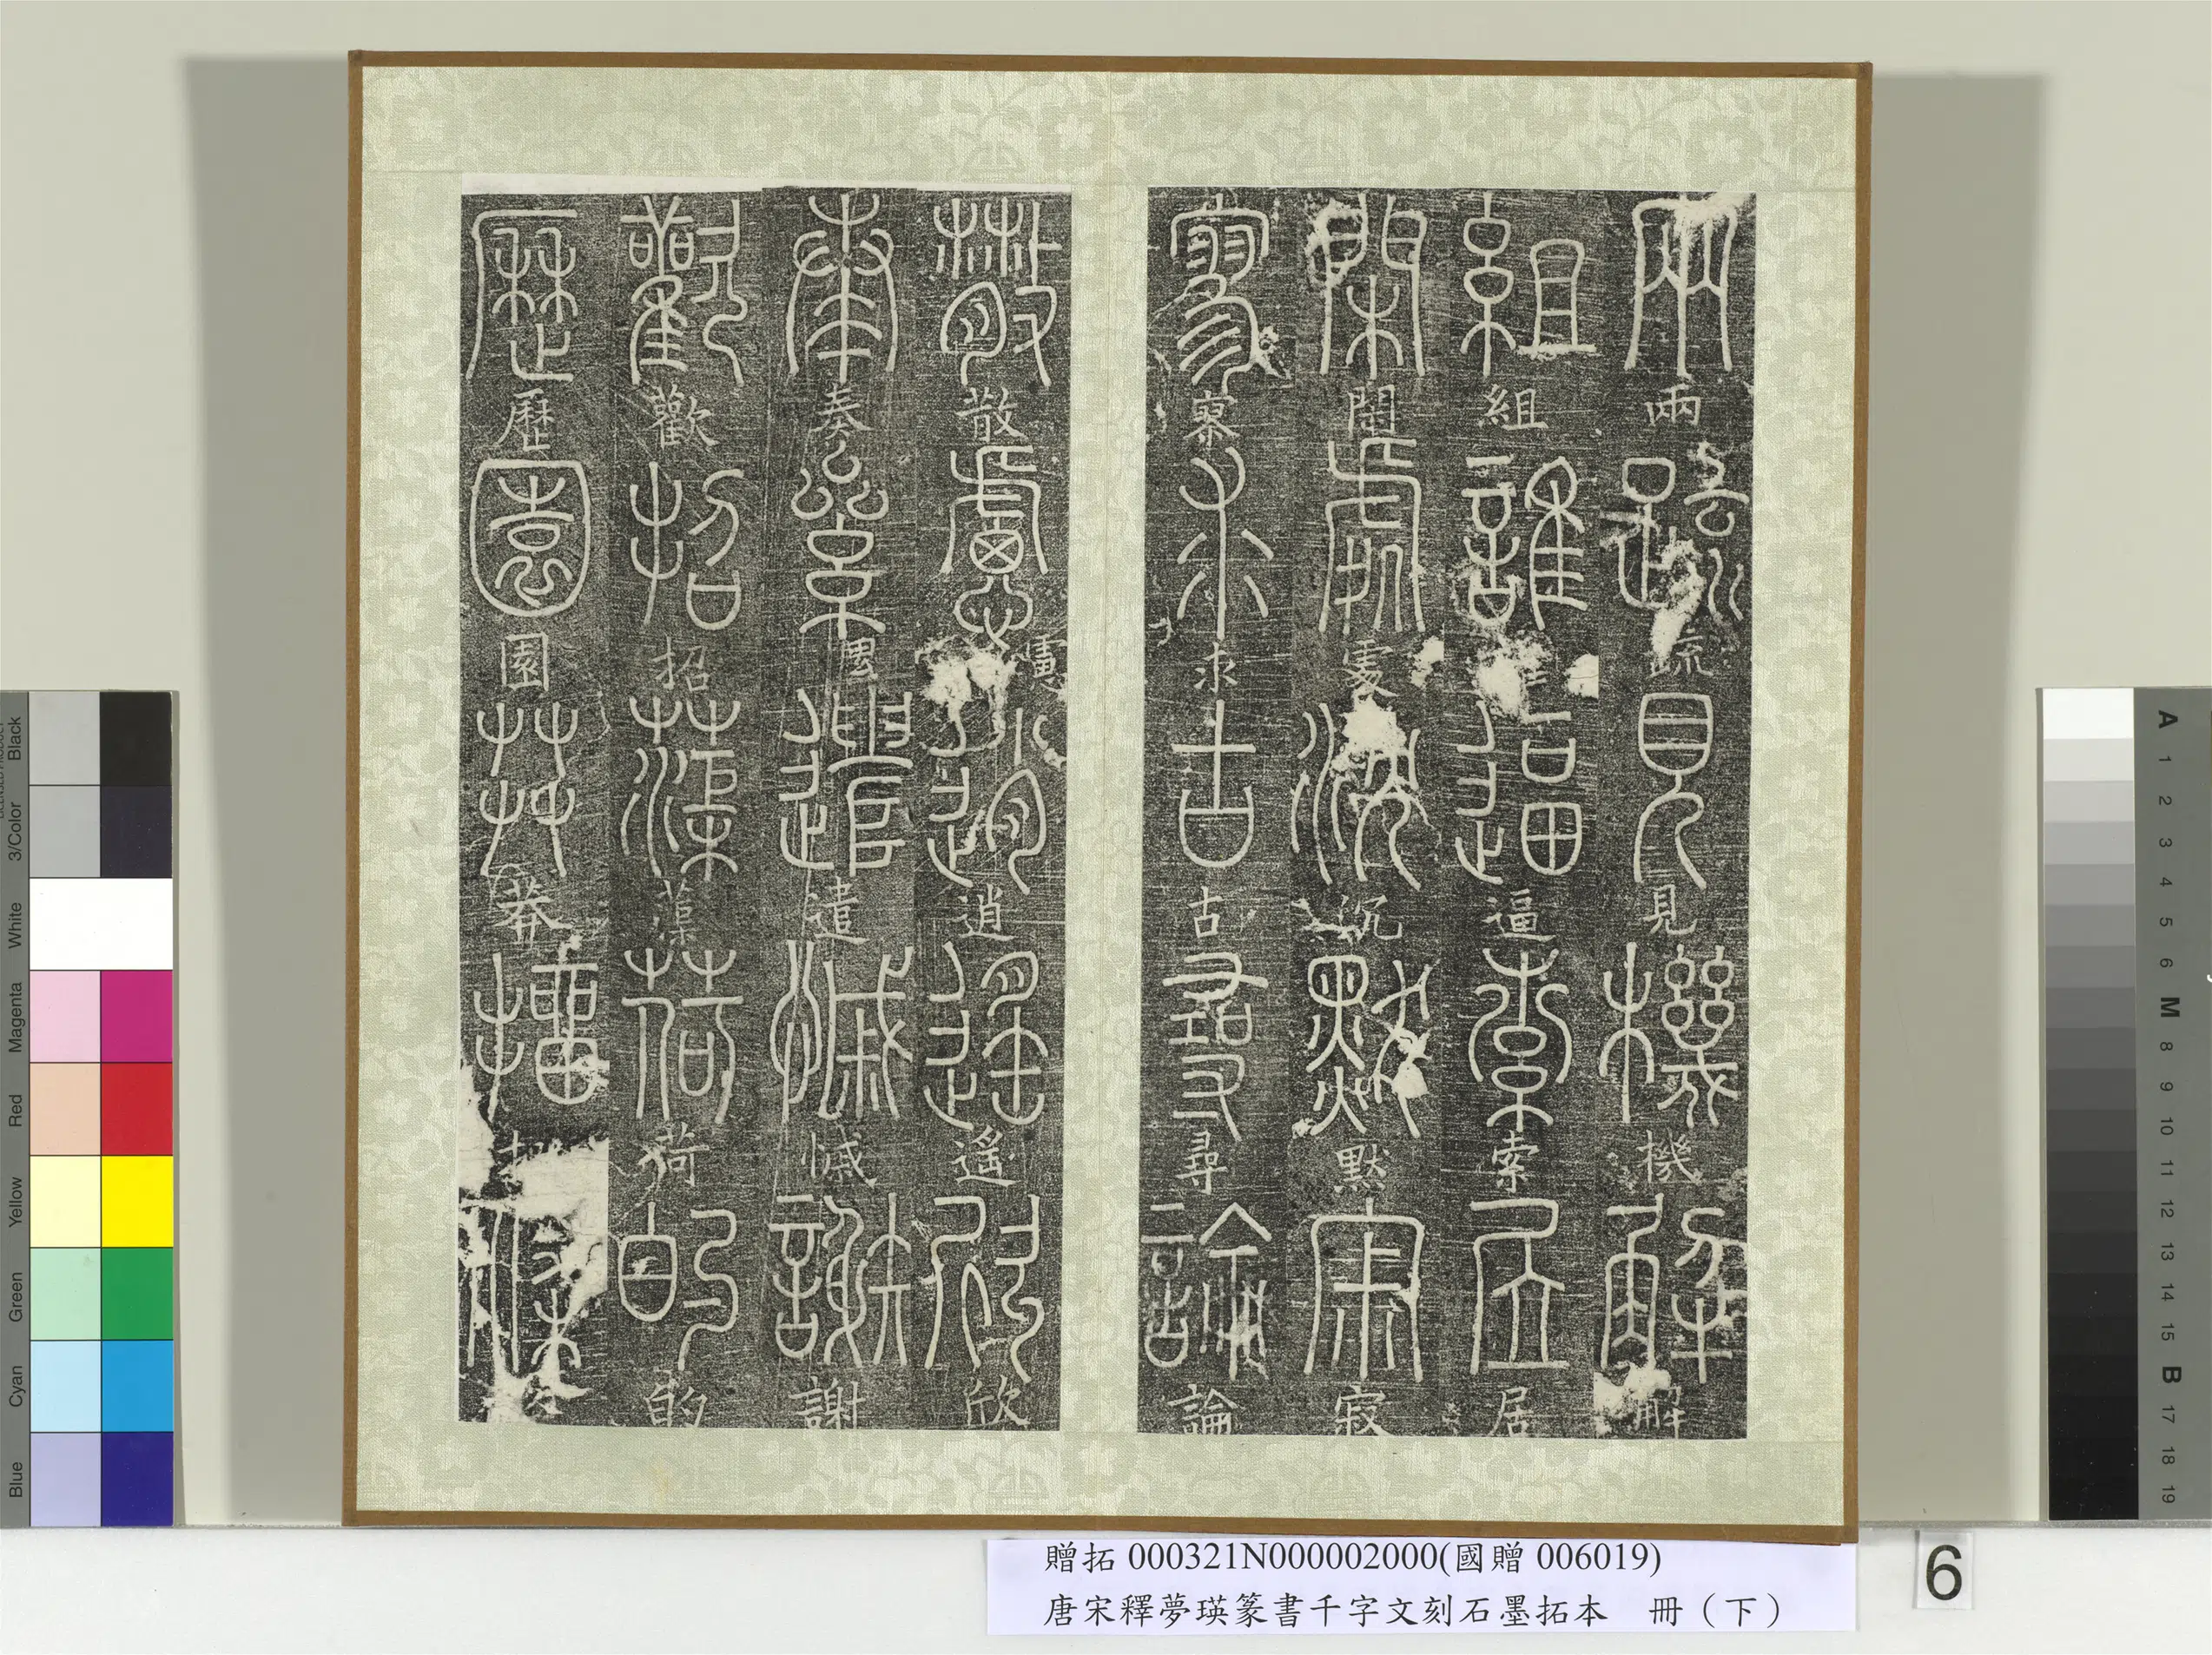 兩疏見機解
組誰逼索居
閑處沉默寂
寥求古尋論
散慮逍遙欣
奏累遣慼謝
歡招蕖荷的
歷園莽抽條
贈拓 000321N000002000(國贈 006019)
唐宋釋夢瑛篆書千字文刻石墨拓本 冊（下）
6
Black
3/Color
White
Magenta
Red
Yellow
Green
Cyan
Blue
A
1
2
3
4
5
6
M
8
9
10
11
12
13
14
15
B
17
18
19